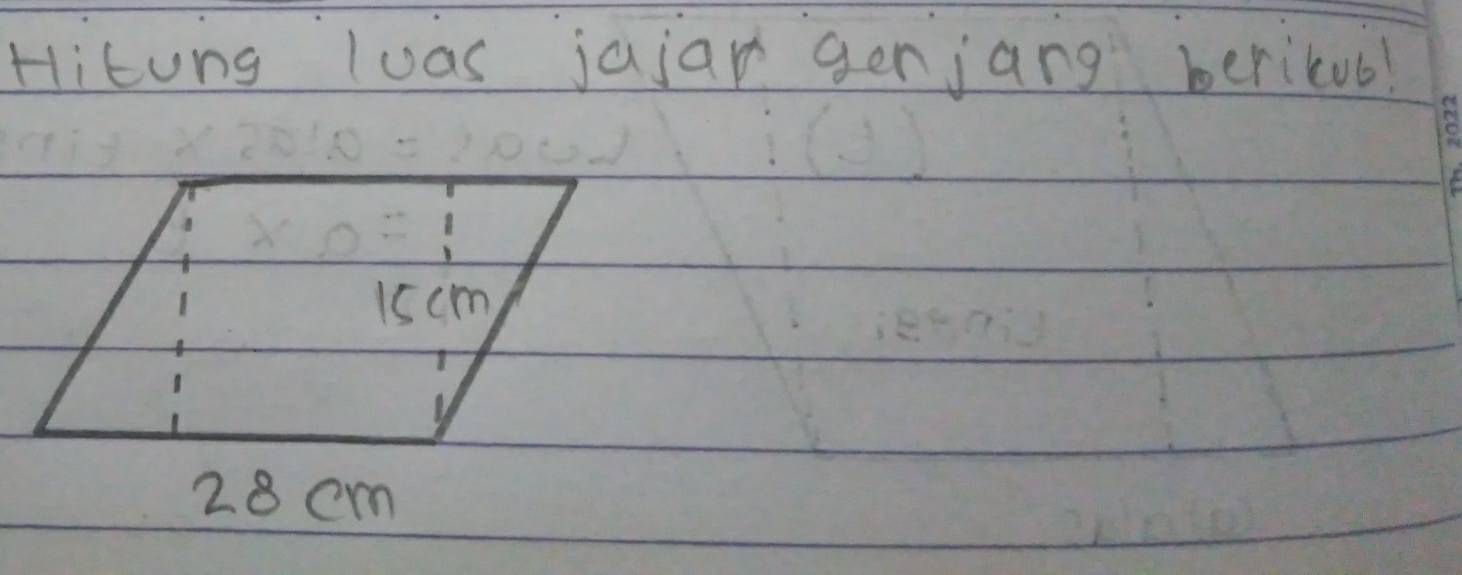 Hitung luas jajar genjang berikub!
15 cm
28 cm
Th. 2022